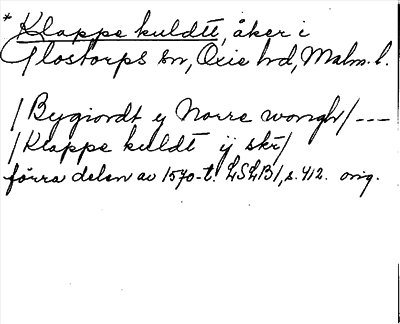 * Klappe kuldtt, åker i
Glostorps sn, Oxie hd, Malm. l.
/Bygiordt ij Norre wongh/---
/Klappe kuldt ij skr/
förra delen av 1570-t. LSLB1, s. 412. orig.